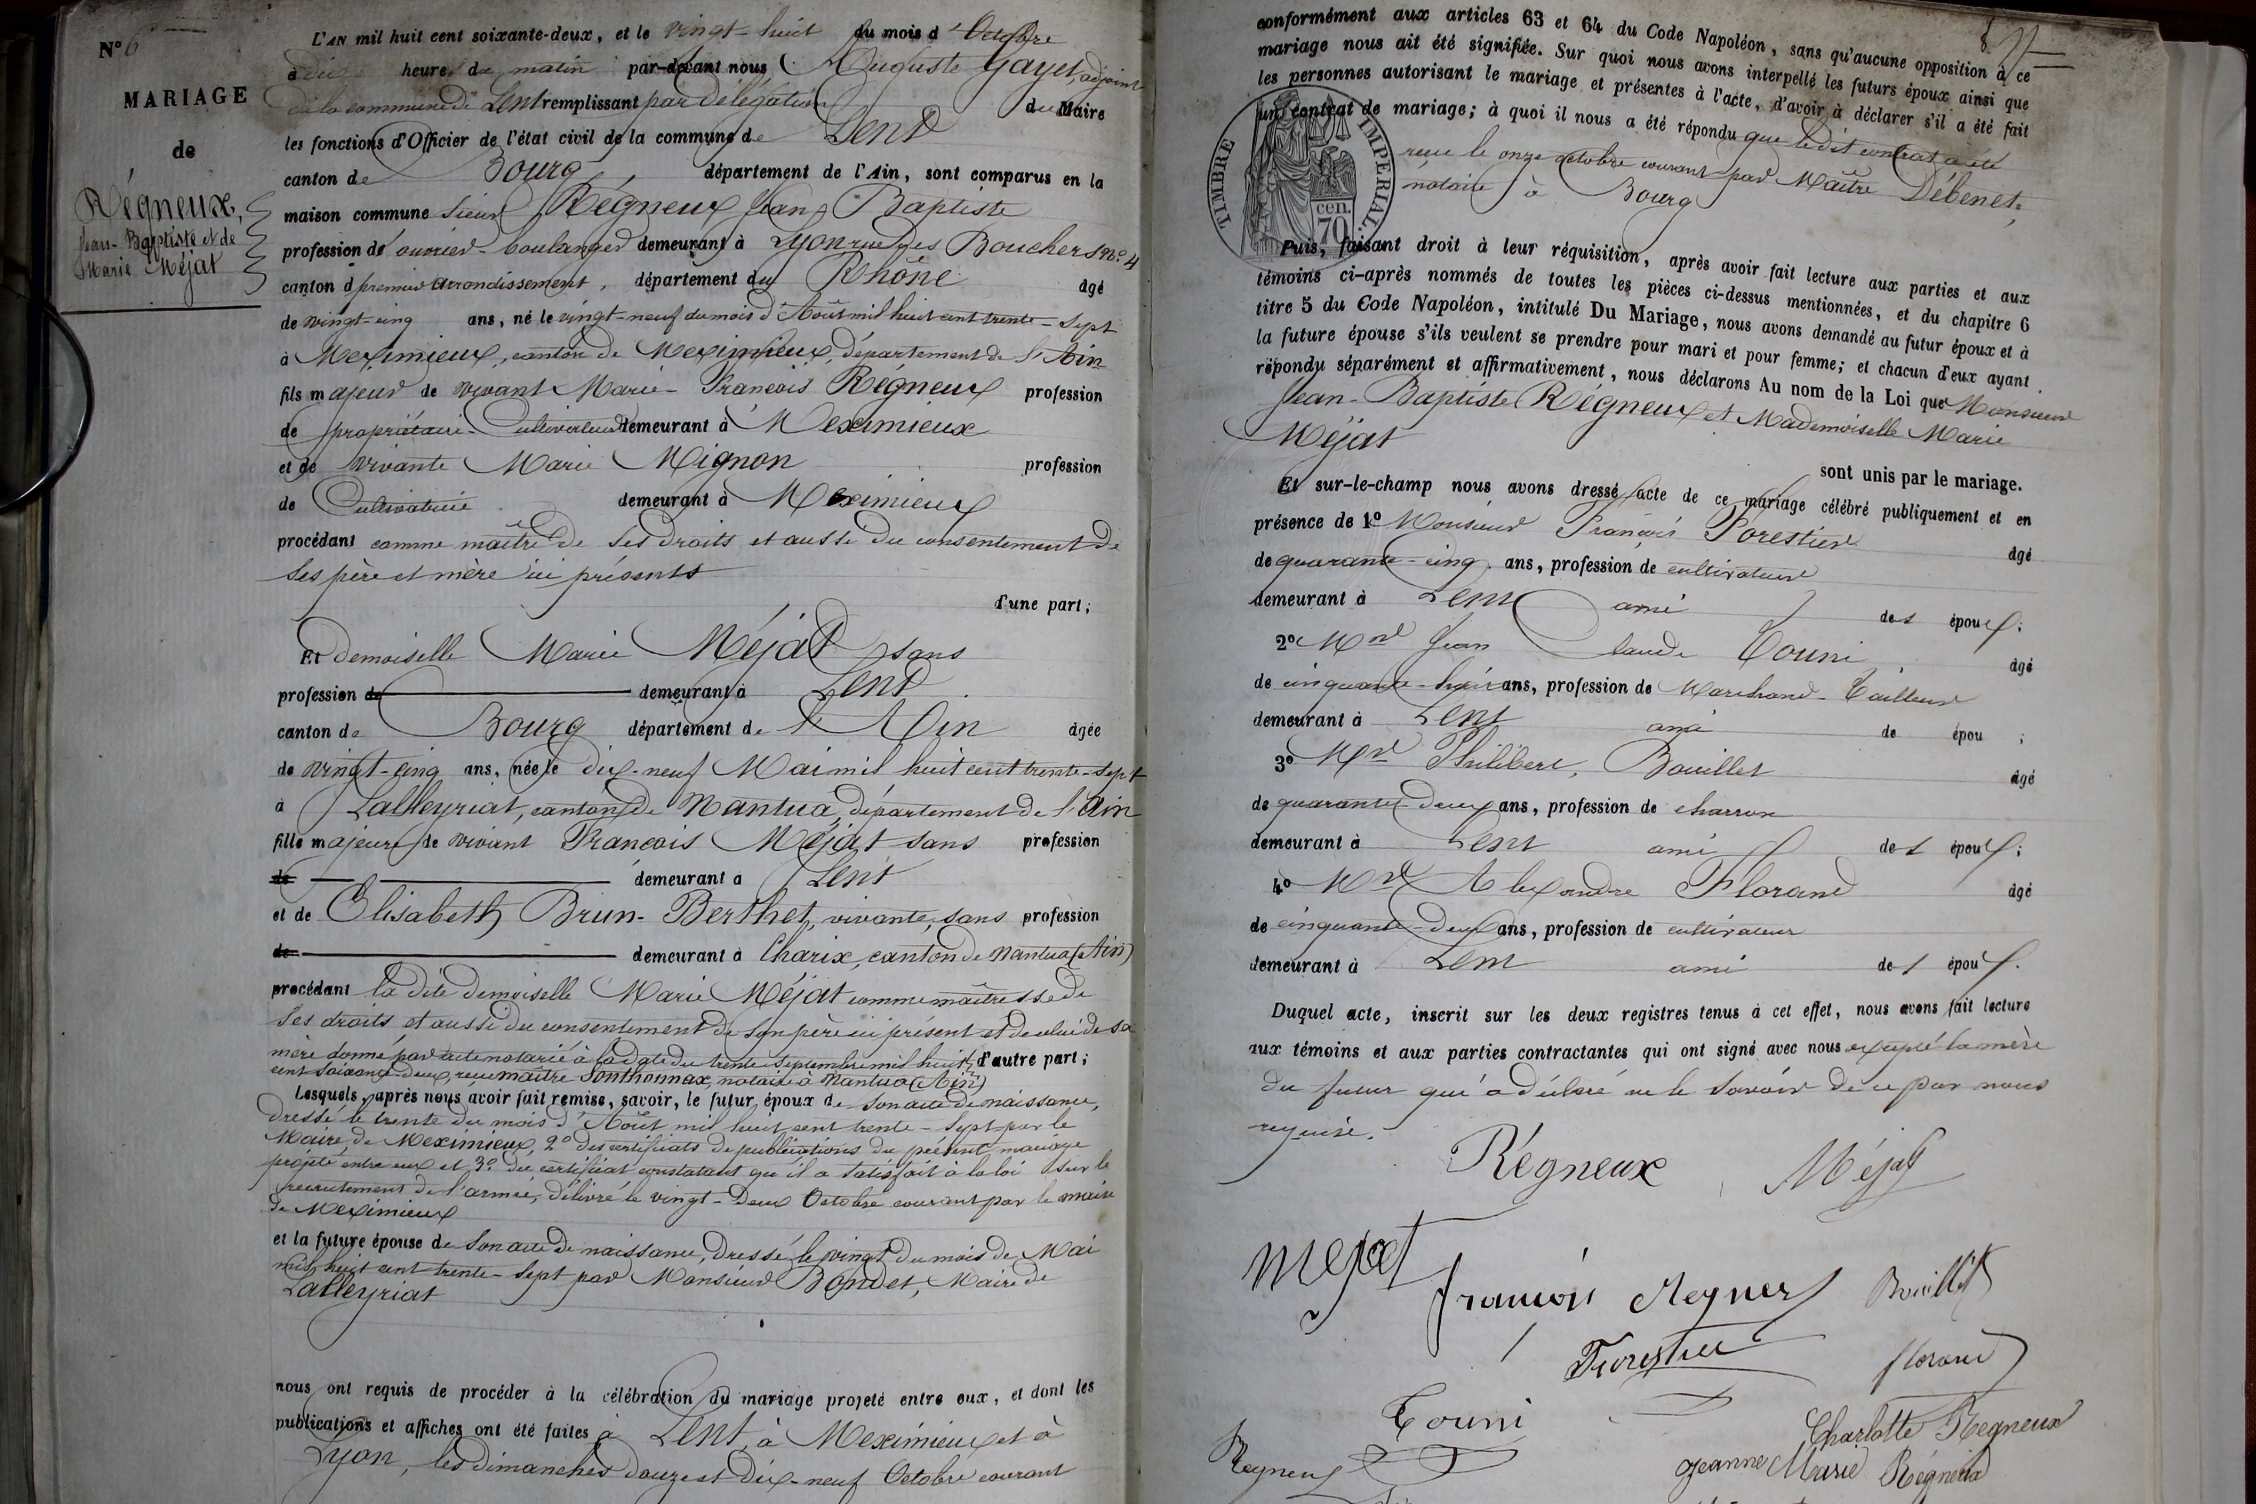 N° 6
MARIAGE
de
Régneux,
Jean-Baptiste et de
Marie Méjat
L'AN mil huit cent soixante-deux, et le vingt-huit du mois d'Octobre
à dix heures du matin par-devant nous Auguste Gayet, adjoint
de la commune de Lent remplissant par délégation du Maire
les fonctions d'Officier de l'état civil de la commune de Lent
canton de Bourg département de l'Ain, sont comparus en la
maison commune sieur Régneux Jean Baptiste
profession de ouvrier-boulanger demeurant à Lyon rue des Bouchers n°. 4
canton d premier arrondissement, département du Rhône âgé
de vingt-cinq ans, né le vingt-neuf du mois d'Août mil huit cent trente-sept
à Meximieux, canton de Meximieux, département de l'Ain
fils majeur de vivant Marie-François Régneux profession
de propriétaire-Cultivateur demeurant à Meximieux
et de vivante Marie Mignon profession
de Cultivatrice demeurant à Meximieux
procédant comme maître de ses droits et aussi du consentement de
ses père et mère ici présents
d'une part;
Et demoiselle Marie Méjat sans
profession de demeurant à Lent
canton de Bourg département de l'Ain âgée
de vingt-cinq ans, née le dix-neuf Mai mil huit cent trente-sept
à Lalleyriat, canton de Nantua, département de l'Ain
fille majeure de vivant François Méjat sans profession
de demeurant à Lent
et de Elisabeth Brun-Berthet, vivante, sans profession
de demeurant à Charix, canton de Nantua (Ain)
procédant la dite demoiselle Marie Méjat comme maîtresse de
ses droits et aussi du consentement de son père ici présent et de celui de sa
mère donné par acte notarié à la date du trente septembre mil huit d'autre part;
cent soixante-deux, reçu maître Sonthonnax, notaire à Nantua (Ain)
Lesquels, après nous avoir fait remise, savoir, le futur époux de son acte de naissance,
dressé le trente du mois d'Août mil huit cent trente-sept par le
Maire de Meximieux, 2° des certificats de publications du présent mariage
projeté entre eux et 3° du certificat constatant qu'il a satisfait à la loi sur le
recrutement de l'armée, délivré le vingt-deux Octobre courant par le maire
de Meximieux
et la future épouse de son acte de naissance, dressé le vingt du mois de Mai
mil huit cent trente-sept par Monsieur Bondet, Maire de
Lalleyriat
nous ont requis de procéder à la célébration du mariage projeté entre eux, et dont les
publications et affiches ont été faites à Lent, à Meximieux et à
Lyon, les dimanches douze et dix-neuf Octobre courant
conformément aux articles 63 et 64 du Code Napoléon, sans qu'aucune opposition à ce
mariage nous ait été signifiée. Sur quoi nous avons interpellé les futurs époux ainsi que
les personnes autorisant le mariage et présentes à l'acte, d'avoir à déclarer s'il a été fait
un contrat de mariage; à quoi il nous a été répondu que le dit contrat a été
reçu le onze octobre courant par Maître Débenet,
notaire à Bourg
TIMBRE IMPERIAL
cen.
70
Puis, faisant droit à leur réquisition, après avoir fait lecture aux parties et aux
témoins ci-après nommés de toutes les pièces ci-dessus mentionnées, et du chapitre 6
titre 5 du Code Napoléon, intitulé Du Mariage, nous avons demandé au futur époux et à
la future épouse s'ils veulent se prendre pour mari et pour femme; et chacun d'eux ayant
répondu séparément et affirmativement, nous déclarons Au nom de la Loi que Monsieur
Jean-Baptiste Régneux et Mademoiselle Marie
Méjat
sont unis par le mariage.
Et sur-le-champ nous avons dressé acte de ce mariage célébré publiquement et en
présence de 1° Monsieur François Forestier âgé
de quarante-cinq ans, profession de cultivateur
demeurant à Lent ami des époux;
2° Mr Jean Claude Touni âgé
de cinquante-huit ans, profession de Marchand-Tailleur
demeurant à Lent ami de épou ;
3° Mr Philibert, Bouillet âgé
de quarante-deux ans, profession de charron
demeurant à Lent ami des époux;
4° Mr Alexandre Florand âgé
de cinquante-deux ans, profession de cultivateur
demeurant à Lent ami des époux.
Duquel acte, inscrit sur les deux registres tenus à cet effet, nous avons fait lecture
aux témoins et aux parties contractantes qui ont signé avec nous excepté la mère
du futur qui a déclaré ne le savoir de ce par nous
requise.
Régneux Méjat
Mejat
françois Regneux Bouillet
Forestier florand
Touni
Charlotte Regneux
Regneux
Jeanne Marie Régneux